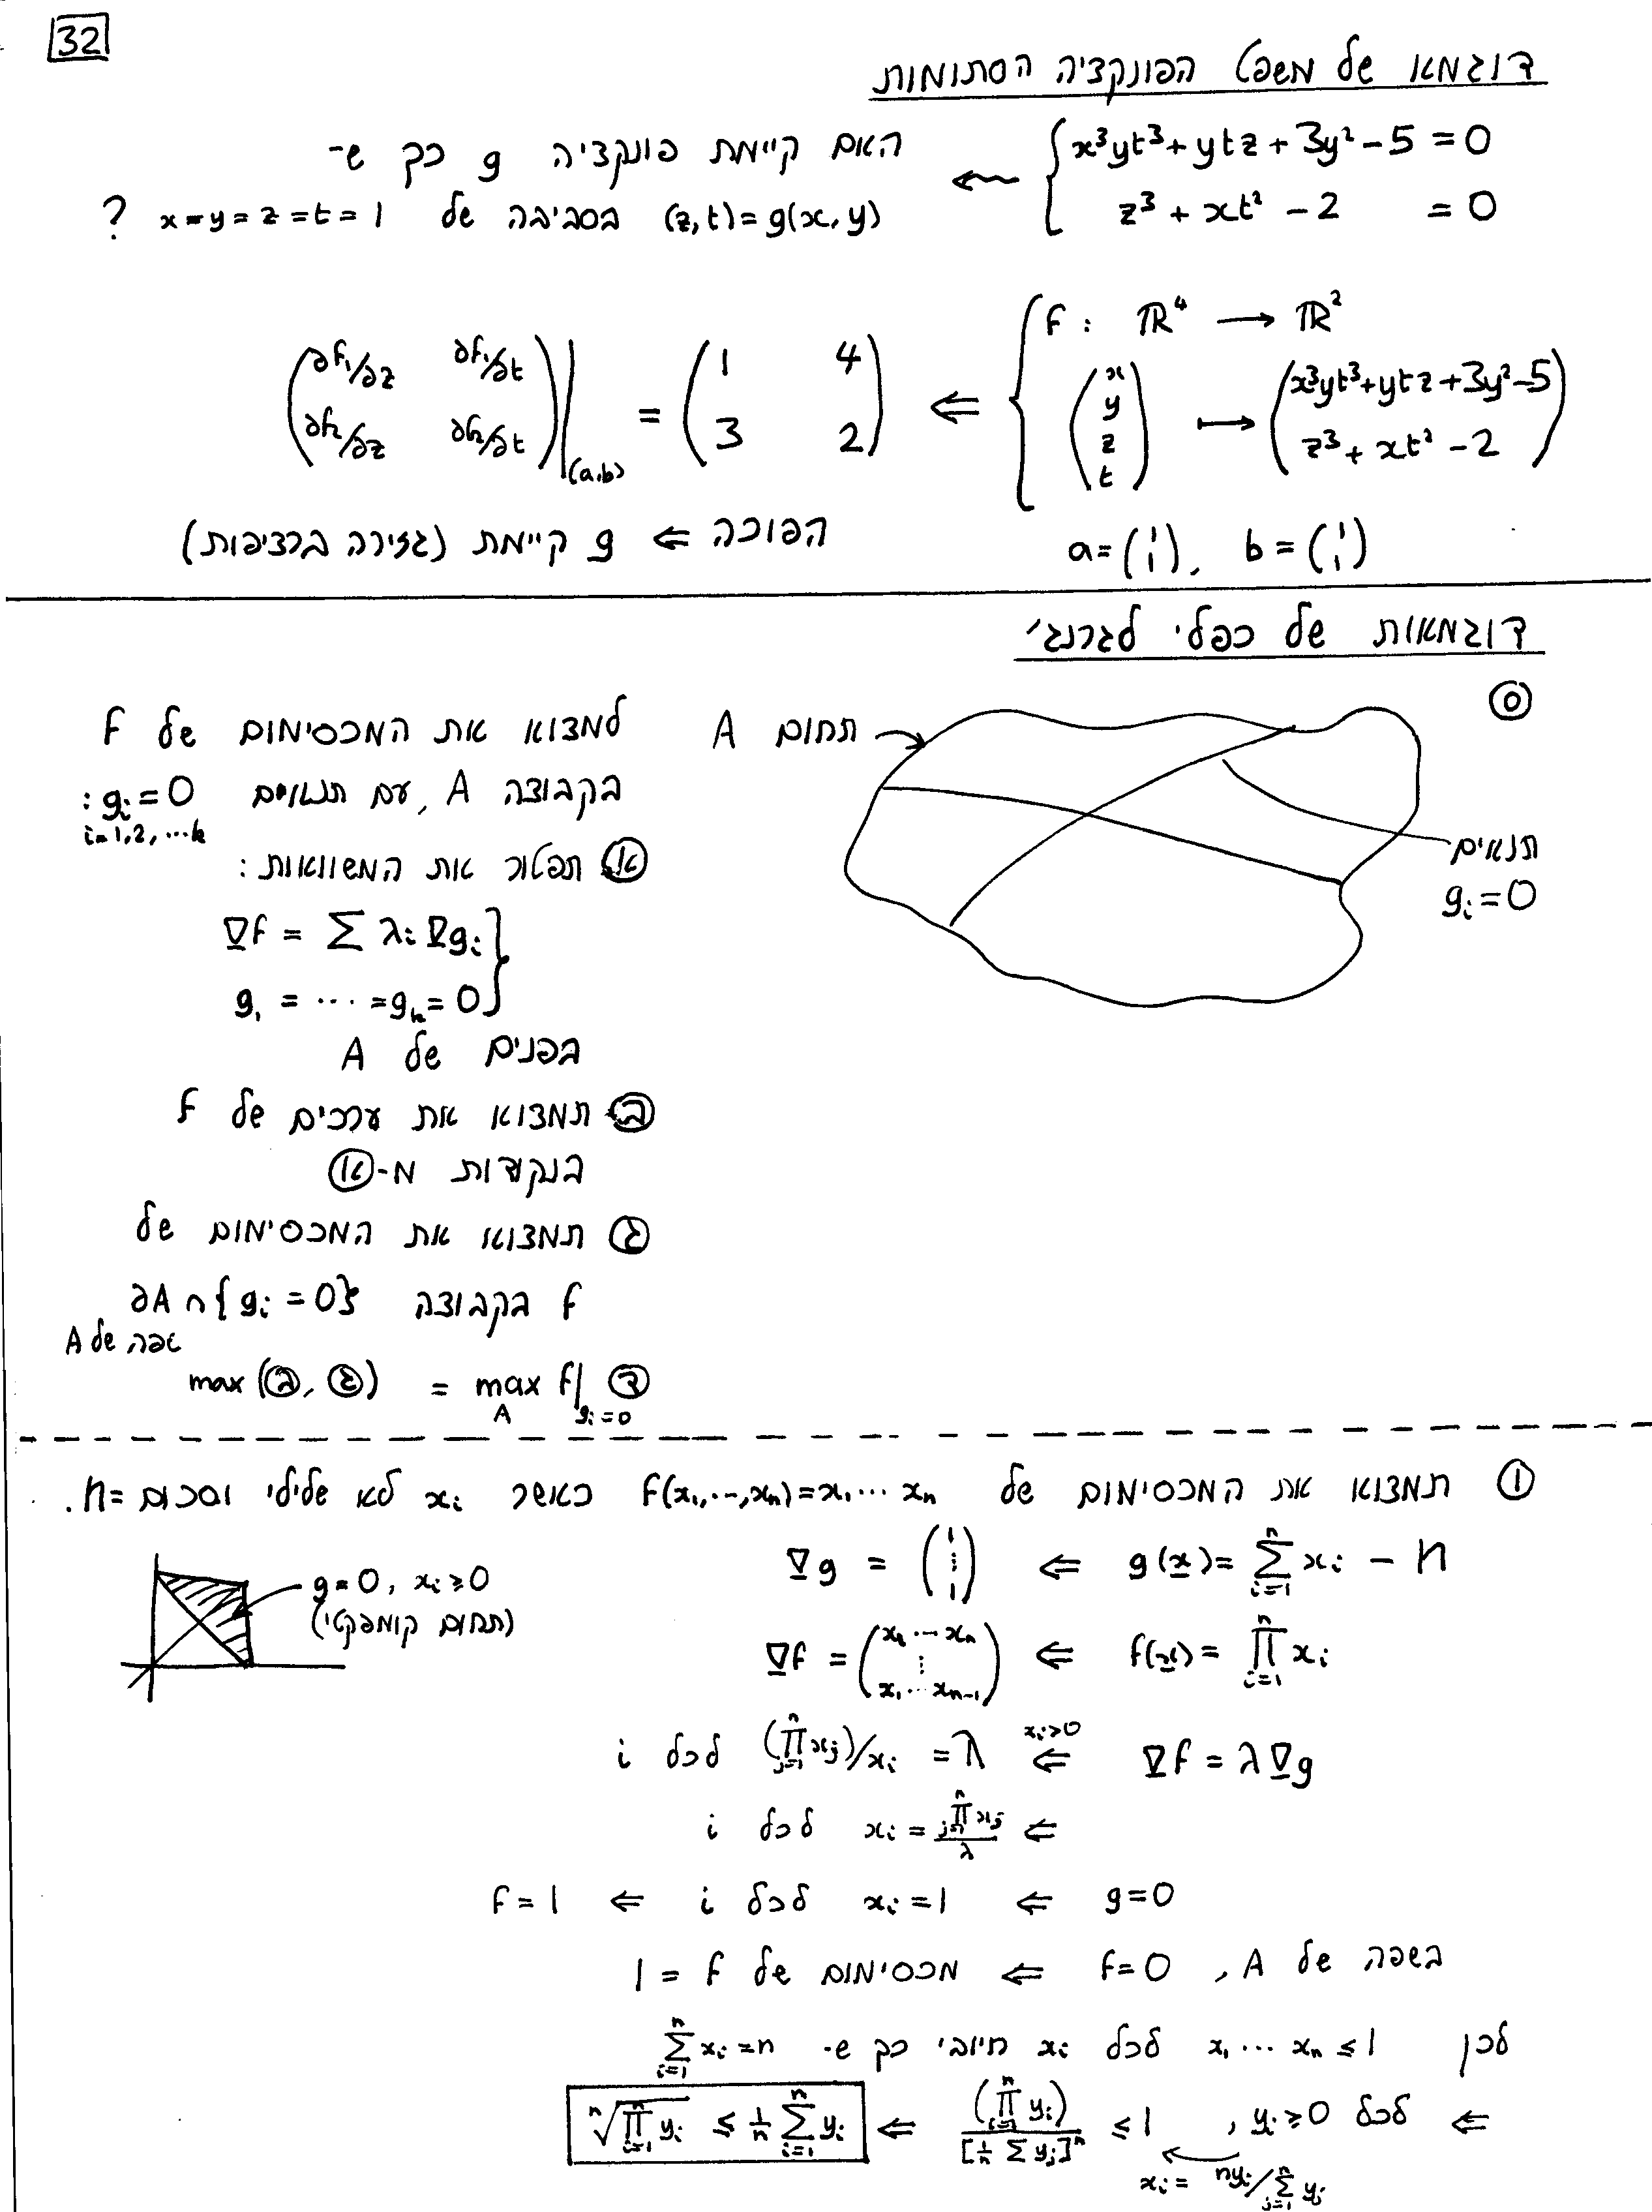 32
דוגמא של משפט הפונקציה הסתומות
{ x³yt³ + ytz + 3y² − 5 = 0
z³ + xt² − 2 = 0
האם קיימת פונקציה g כך ש-
(z,t) = g(x,y) בסביבה של x=y=z=t=1 ?
{ f : ℝ⁴ → ℝ²
(x y z t) ↦ (x³yt³+ytz+3y²−5
z³ + xt² − 2)
a = (1 1), b = (1 1)
⇐ (∂f₁/∂z ∂f₁/∂t
∂f₂/∂z ∂f₂/∂t)|(a,b) = (1 4
3 2)
הפוכה ⇐ g קיימת (גזירה ברציפות)
דוגמאות של כפלי לגרנג'
⓪
תחום A
תנאים
gᵢ = 0
למצוא את המכסימום של f
בקבוצה A, עם תנאים gᵢ = 0 :
i=1,2,…k
א תפטור את המשוואות :
∇f = Σ λᵢ ∇gᵢ }
g₁ = ⋯ = gₖ = 0
בפנים של A
ב תמצוא את ערכים של f
בנקודות מ-א
ג תמצוא את המכסימום של
f בקבוצה ∂A ∩ {gᵢ = 0}
שפה של A
ד max f|gᵢ=0 = max (ב, ג)
A
① תמצוא את המכסימום של f(x₁,⋯,xₙ)=x₁⋯xₙ כאשר xᵢ לא שלילי וסכום =n.
g(x) = Σᵢ₌₁ⁿ xᵢ − n ⇐ ∇g = (1 ⋮ 1)
g=0, xᵢ≥0
(תחום קומפקטי)
f(x) = ∏ᵢ₌₁ⁿ xᵢ ⇐ ∇f = (x₂⋯xₙ ⋮ x₁⋯xₙ₋₁)
∇f = λ∇g ⇐ xᵢ>0 (∏ⱼ₌₁ⁿ xⱼ)/xᵢ = λ לכל i
⇐ xᵢ = ∏ⱼ₌₁ⁿ xⱼ / λ לכל i
g=0 ⇐ xᵢ=1 לכל i ⇐ f=1
בשפה של A, f=0 ⇐ מכסימום של f = 1
לכן x₁⋯xₙ ≤ 1 לכל xᵢ חיובי כך ש- Σᵢ₌₁ⁿ xᵢ = n
⇐ לכל yᵢ≥0, (∏ᵢ₌₁ⁿ yᵢ)/[1/n Σ yⱼ]ⁿ ≤ 1 ⇐ ⁿ√(∏ᵢ₌₁ⁿ yᵢ) ≤ 1/n Σᵢ₌₁ⁿ yᵢ
xᵢ = nyᵢ/Σⱼ₌₁ⁿ yⱼ